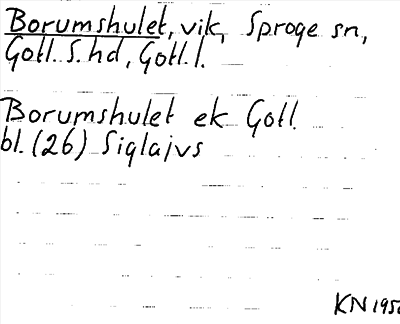 Borumshulet, vik, Sproge sn,
Gotl. S. hd, Gotl. l.
Borumshulet ek Gotl.
bl. (26) Siglajvs
KN 195